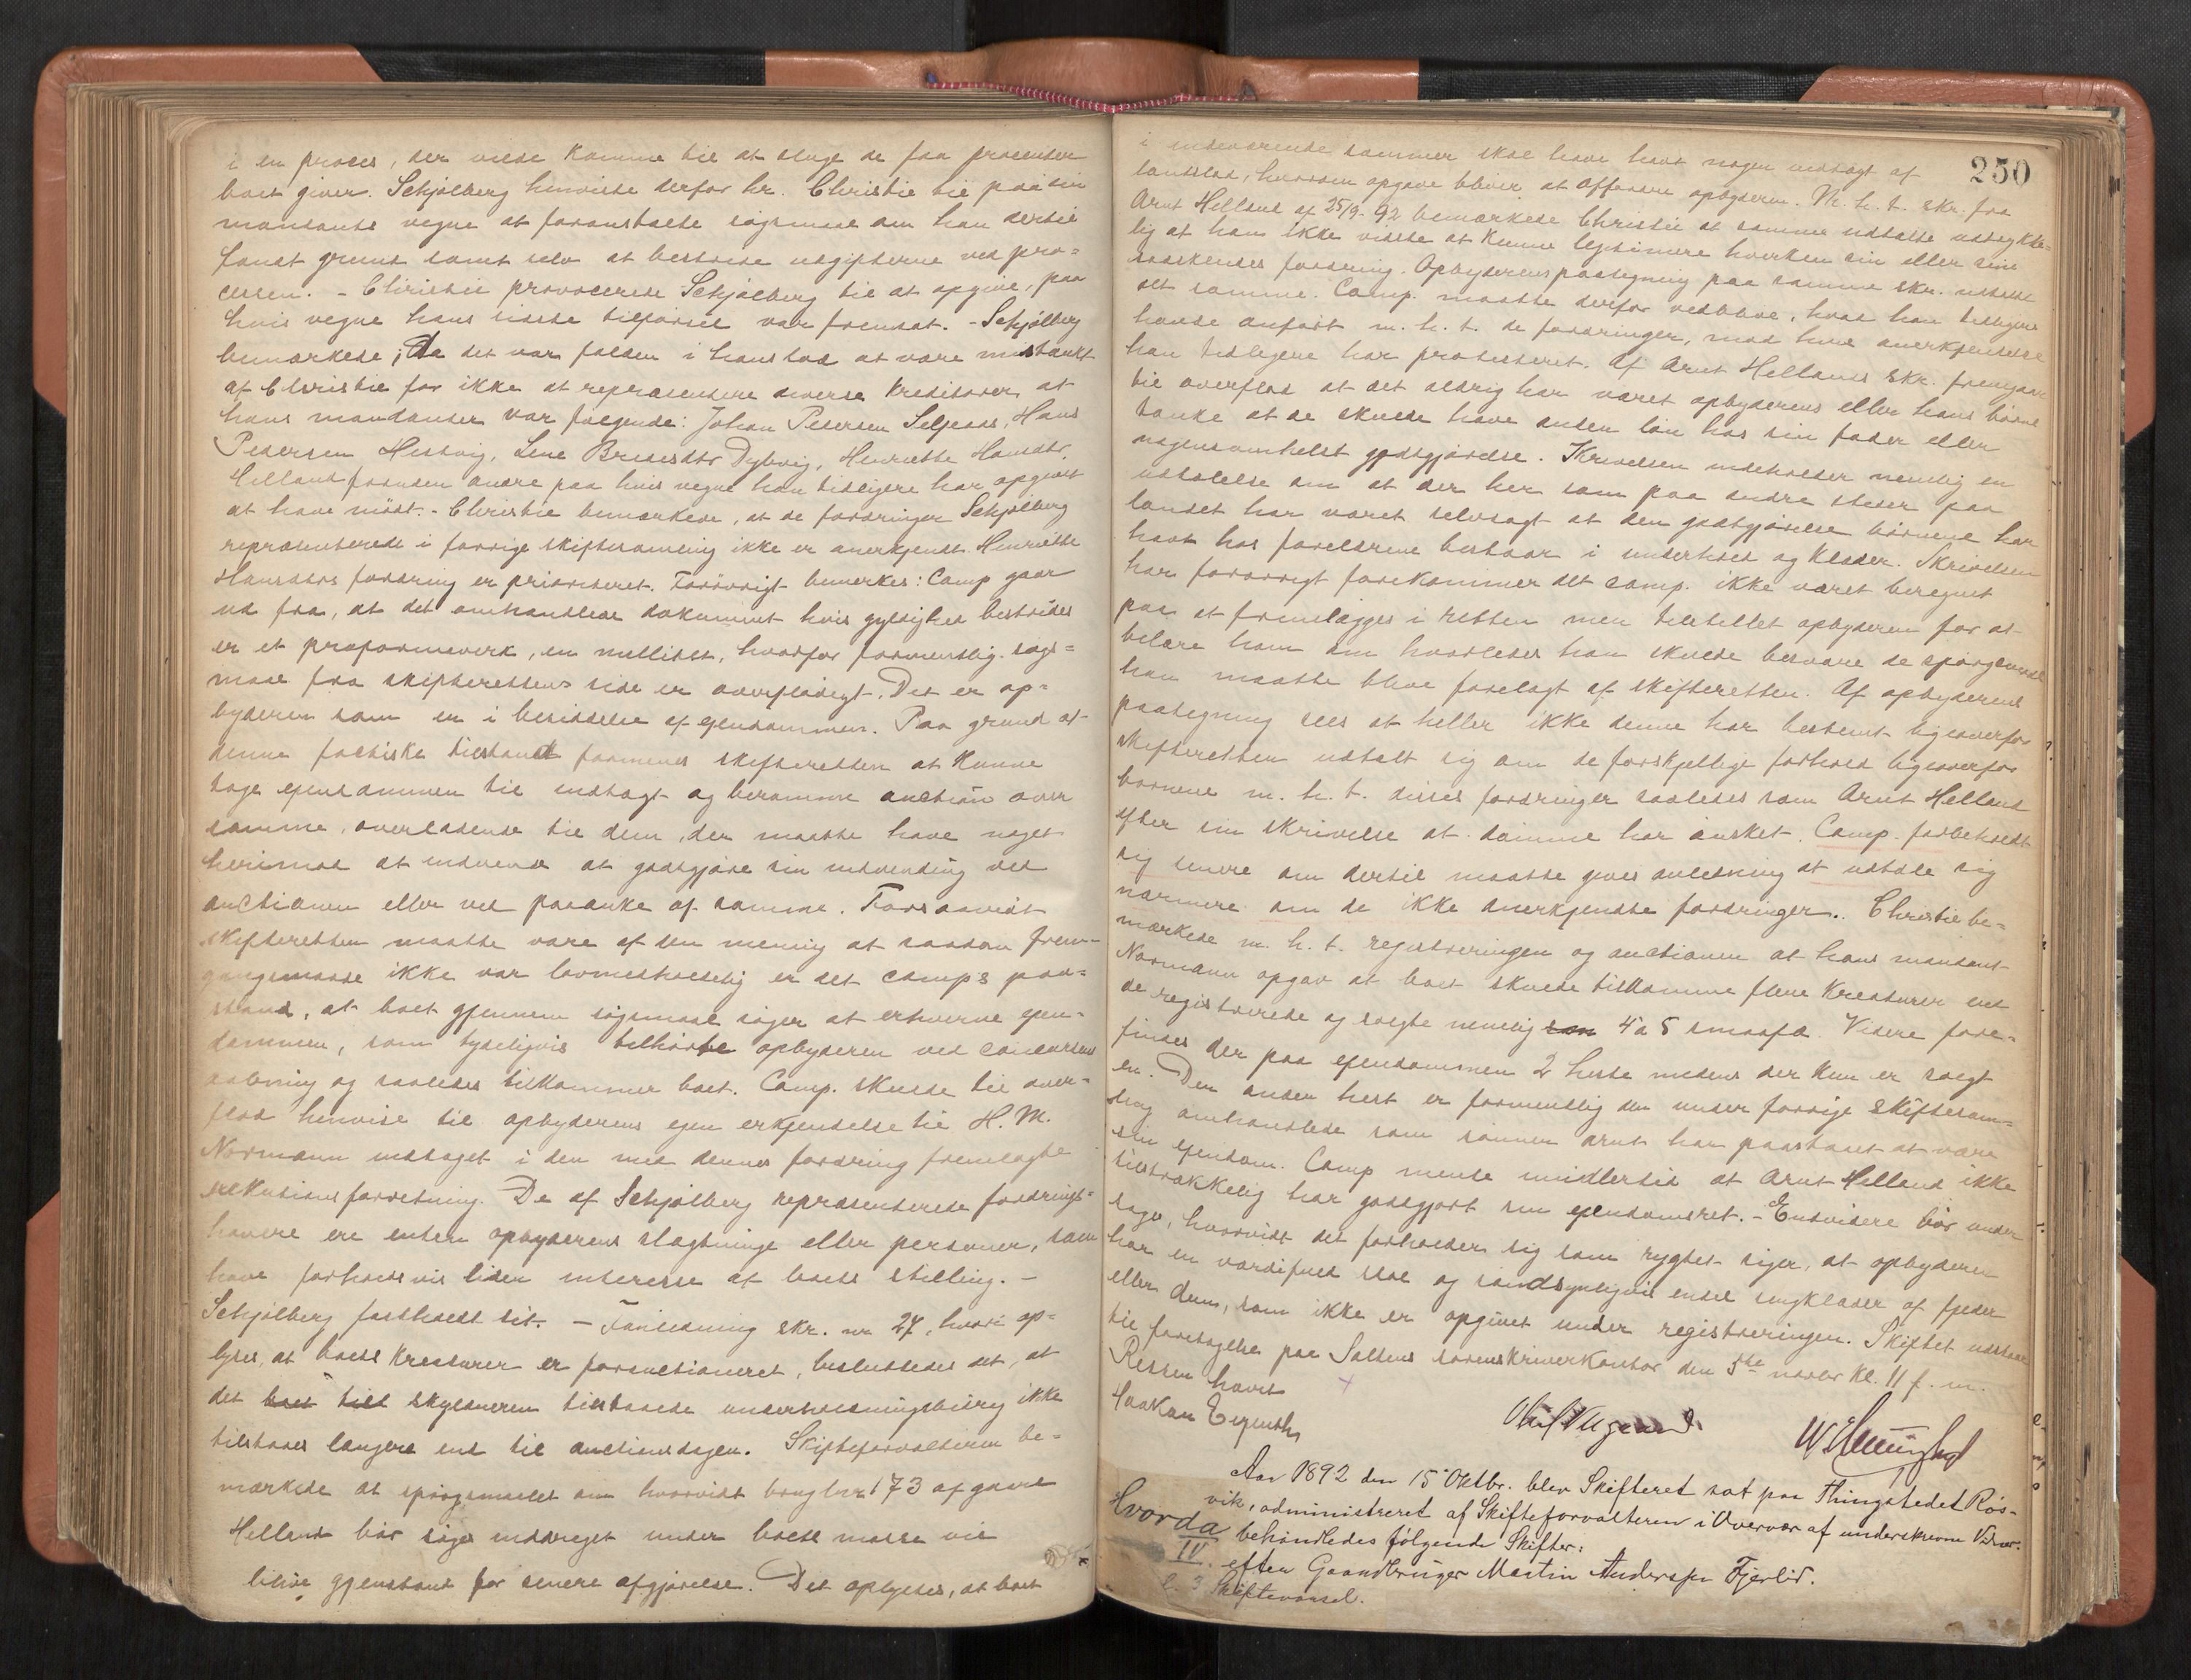 i en proces, der vilde komme til at sluge de faa procenter
boet giver. Schjølberg henviste derfor hr. Christie til paa sin
mandants vegne at foranstalte søgsmaal om han dertil
fandt grund samt selv at bestride udgifterne ved pro=
cessen. - Christie provocerede Schjølberg til at opgive, paa
hvis vegne hans sidste tilførsel var fremsat. - Schjølberg
bemærkede, da det var falden i hans lod at være mistænkt
af Christie for ikke at repræsentere diverse kreditorer at
hans mandanter var følgende: Johan Pedersen Seljeaas, Hans
Pedersen Hestvig, Lene Bredesdtr Dybvig, Henriette Hansdtr.
Helland foruden andre paa hvis vegne han tidligere har opgivet
at have mødt. - Christie bemærkede, at de fordringer Schjølberg
repræsenterede i forrige skiftesamling ikke er anerkjendt. Henriette
Hansdtrs fordring er prioriteret. Forøvrigt bemerkes: Comp gaar
ud fra, at det omhandlede dokument hvis gyldighed bestrides
er et proformaverk, en nullitet, hvorfor formentlig søgs=
maal fra skifterettens side er overflødigt. Det er op=
byderen som er i besiddelse af ejendommen. Paa grund af
denne faktiske tilstand formenes skifteretten at kunne
tage ejendommen til indtægt og beramme auction over
samme, overladende til dem, der maatte have noget
herimod at indvende at godtgjøre sin indvending ved
auctionen eller ved paaanke af samme. Forsaavidt
skifteretten maatte være af den mening at saadan frem=
gangsmaade ikke var lovmedholdelig er det comp's paa=
stand, at boet gjennem søgsmaal søger at erhverve ejen=
dommen, som tydeligvis tilhørte opbyderen ved concursens
aabning og saaledes tilkommer boet. Comp. skulde til over=
flod henvise til opbyderens egen erkjendelse til H. M.
Normann indtaget i den med dennes fordring fremlagte
exekutionsforretning. De af Schjølberg repræsenterede fordrings=
havere ere enten opbyderens slægtninge eller personer, som
have forholdsvis liden interesse af boets stilling. -
Schjølberg fastholdt sit. - I anledning skr. nr 27, hvori op=
lyses, at boets kreaturer er forauctioneret, besluttedes det, at
det skyldneren tilstaaede underholdningsbidrag ikke
tilstaaes længere end til auctionsdagen. Skifteforvalteren be=
mærkede at spørgsmaalet om hvorvidt brugsnr 173 af gaard
Helland bør søges inddraget under boets masse vil
blive gjenstand for senere afgjørelse. Det oplystes, at boet
250
i indeværende sommer skal have havt nogen indtægt af
landslod, hvorom opgave bliver at affordre opbyderen. M. h. t. skr. fra
Arnt Helland af 25/9-92 bemærkede Christie at samme udtalte udtrykke=
lig at han ikke vidste at kunne legitimere hverken sin eller sine
sødskendes fordring. Opbyderens paategning paa samme skr. udtalte
det samme. Comp. maatte derfor vedblive, hvad han tidligere
havde anført m. h. t. de fordringer, mod hvis anerkjendelse
han tidligere har protesteret. Af Arnt Hellands skr. fremgaar
til overflod at det aldrig har været opbyderens eller hans børns
tanke at de skulde have anden løn hos sin fader eller
nogensomhelst godtgjørelse. Skrivelsen indeholder nemlig en
udtalelse om at der her som paa andre steder paa
landet har været selvsagt at den godtgjørelse børnene har
havt hos forældrene bestaar i underhold og klæder. Skrivelsen
har forøvrigt forekommer det comp. ikke været beregnet
paa at fremlægges i retten men tilstillet opbyderen for at
belære ham om hvorledes han skulde besvare de spørgsmaal
han maatte blive forelagt af skifteretten. Af opbyderens
paategning sees at heller ikke denne har bestemt ligeoverfor
skifteretten udtalt sig om de forskjellige forhold ligeoverfor
børnene m. h. t. disses fordringer saaledes som Arnt Helland
efter sin skrivelse at dømme har ønsket. Comp. forbeholdt
sig senere om dertil maatte gives anledning at udtale sig
nærmere om de ikke anerkjendte fordringer. Christie be=
mærkede m. h. t. registreringen og auctionen at hans mandant
Normann opgav at boet skulde tilkomme flere kreaturer end
de registrerede og solgte nemlig 4 a 5 smaafæ. Videre fore=
findes der paa ejendommen 2 heste medens der kun er solgt
en. Den anden hest er formentlig den under forrige skiftesam=
ling omhandlede som sønnen Arnt har paastaaet at være
sin ejendom. Comp mente imidlertid at Arnt Helland ikke
tilstrækkelig har godtgjort sin ejendomsret. - Endvidere bør under
søges, hvorvidt det forholder sig som rygtet siger, at opbyderen
har en værdifuld slæ og sandsynligvis endel sengklæder af fjeder
eller duun, som ikke er opgivet under registreringen. Skiftet udstaar
til foretagelse paa Saltens sorenskriverkontor den 5te novbr kl. 11 f. m.
Retten hævet
Haakon
Aar 1892 den 15 Oktbr. blev Skifteret sat paa Thingstedet Røs-
vik, administreret af Skifteforvalteren i Overvær af underskrevne Vidner.
Hvorda behandledes følgende Skifter:
IV. efter Gaardbruger Martin Andersen Fjerlid.
Skiftevarsel.